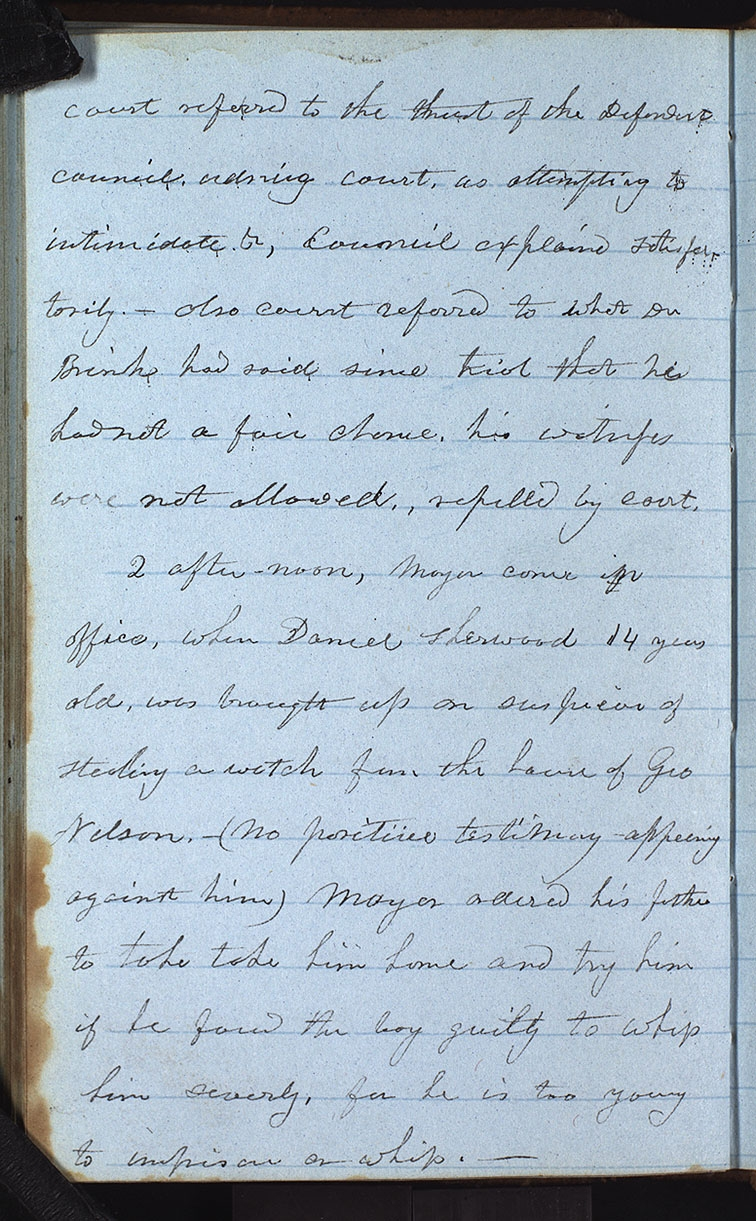 court referred to the threat of the Defendent
council. udring court. as attempting to
intimidate it, Council explained satisfac
torily. — also court referred to what Dr
Brink had said since trial that he
had not a fair chance. his witnesses
were not allowed., repelled by court.
2 after-noon, Mayor come in
office, when Daniel Sherwood 14 years
old, was brought up on suspicion of
stealing a watch from the house of Geo
Nelson. — (no positive testimony appearing
against him) Mayor ordered his father
to take take him home and try him
if he found the boy guilty to whip
him severly, for he is too young
to imprison or whip. —